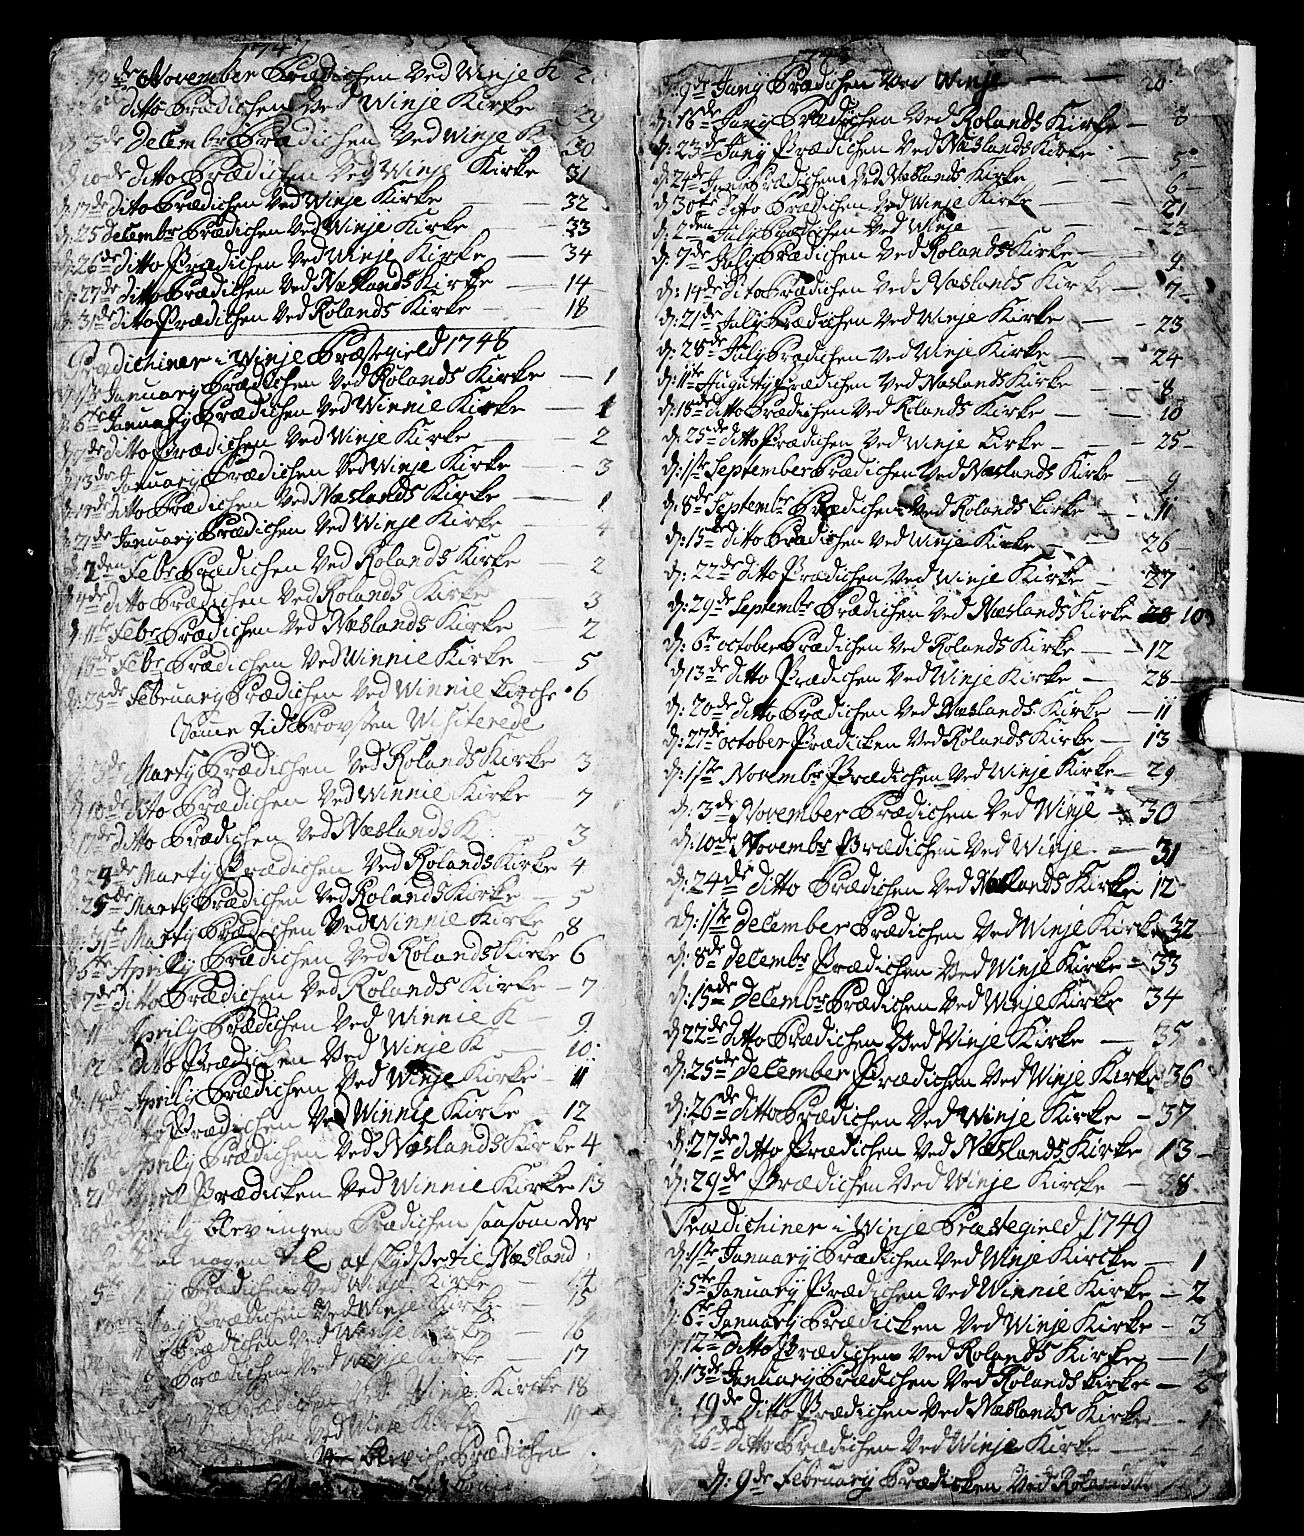 1747
19de November Prædichen Ved Winje K 2
ditto Prædichen Ved Winje Kirke 29
d: 3de Decembr Prædichen Ved Winje K 30
d: 10de ditto Prædichen Ved Winje Kirke 31
d: 17de ditto Prædichen Ved Winje Kirke — 32
d: 25 decembr Prædichen Ved Winje Kirke — 33
d: 26de ditto Prædichen Ved Winje Kirke — 34
d: 27de ditto Prædichen Ved Næslands Kirke — 14
d: 31de ditto Prædichen Ved Rolands Kirke — 18
Prædichiner i Winje Præstegield 1748
d: 1ste January Prædichen Ved Rolands Kirke — 1
d: 6te January Prædichen Ved Winnie Kirke — 1
ditto Prædichen Ved Winje Kirke — 2
d: 13de January Prædichen Ved Winje Kirke — 3
ditto Prædichen Ved Næslands Kirke — 1
d: 21de January Prædichen Ved Winje Kirke — 4
d: 2den Febr Prædichen Ved Rolands Kirke — 2
d: 4de ditto Prædichen Ved Rolands Kirke 3
d: 11te Febr Prædichen Ved Næslands Kirke — 2
d: 15de Febr Prædichen Ved Winnie Kirke — 5
d: 25de February Prædichen Ved Winnie Kirche 6
Same Tid Provsten Wisiterede
d: 3de Marty Prædichen Ved Rolands Kirke 3
d: 10de dito Prædichen Ved Winnie Kirke — 7
d: 17de ditto Prædichen Ved Næslands K 3
d: 24de Marty Prædichen Ved Rolands Kirke 4
d: 25de Marty Prædichen Ved Rolands Kirke — 5
d: 31te Marty Prædichen Ved Winnie Kirke 8
d: 6te Aprily Prædichen Ved Rolands Kirke 6
d: 7de ditto Prædichen Ved Rolands Kirke — 7
d: 11 Aprily Prædichen Ved Winnie K — 9
d: 12 dito Prædicken Ved Winje K — 10
d: 14de Aprily Prædichen Ved Winje Kirke — 11
Prædichen Ved Winnie Kirke — 12
Aprily Prædichen Ved Næslands Kirke 4
d: 21de April Prædicken Ved Winnie Kirke 13
28de Aprily blev ingen Prædichen saasom der
nogen til af skydsse til Næsland
5te Prædichen Ved Winje Kirke — 14
Prædichen Ved Winje Kirke — 15
Prædichen Ved Winje Kirke — 16
Prædichen Ved Winje Kirke — 17
Prædichen Ved Winje Kircke 18
Prædichen Ved Winje Kirke — 19
blev iche Prædichen
d: 9de Juny Prædichen Ved Winje — — 20
d: 16de Juny Prædichen Ved Rolands Kirke — 8
d: 23de Juny Prædichen Ved Næslands Kirke — 5
d: 24de Juny Prædichen Ved Næslands Kirke — — 6
d: 30te ditto Prædichen Ved Winje Kirke — — 21
d: 2den July Prædichen Ved Winje — — 22
d: 7de July Prædichen Ved Rolands Kirke — 9
d: 14de dito Prædichen Ved Næslands Kirke — 7
d: 21de July Prædichen Ved Winje Kirke — — 23
d: 28de July Prædichen Ved Winje Kirke — — 24
d: 11te Augusty Prædichen Ved Næslands Kirke — 8
d: 18de ditto Prædichen Ved Rolands Kirke — — 10
d: 25de ditto Prædichen Ved Winje Kirke — — 25
d: 1ste September Prædichen Ved Næslands Kirke 9
d: 8de Septembr Prædichen Ved Rolands Kirke — 11
d: 15de ditto Prædichen Ved Winje Kirke — — 26
d: 22de ditto Prædichen Ved Winje Kirke — 27
d: 29de Septembr Prædichen Ved Næslands Kirke 28 10
d: 6te october Prædichen Ved Rolands Kirke — 12
d: 13de ditto Prædichen Ved Winje Kirke — 28
d: 20de ditto Prædichen Ved Næslands Kirke — 11
d: 27de october Prædicken Ved Rolands Kirke — 13
d: 1ste Novembr Prædichen Ved Winje Kirke — 29
d: 3de November Prædichen Ved Winje — 30
d: 10de Novembr Prædichen Ved Winje — 31
d: 24de ditto Prædichen Ved Næslands Kirke 12
d: 1ste december Prædichen Ved Winje Kirke 32
d: 8de decembr Prædichen Ved Winje Kirke — 33
d: 15de decembr Prædichen Ved Winje Kirke 34
d: 22de ditto Prædichen Ved Winje Kirke — 35
d: 25de december Prædichen Ved Winje Kirke 36
d: 26de ditto Prædichen Ved Winje Kirke — 37
d: 27de ditto Prædichen Ved Næslands Kirke 13
d: 29de Prædichen Ved Winje Kircke — 38
Prædichiner i Winje Præstegield 1749
d: 1ste January Prædichen Ved Winje Kircke — 1
d: 5te January Prædichen Ved Winnie Kirke — 2
d: 6te January Prædicken Ved Winje Kirke — 3
d: 12te ditto Prædichen Ved Rolands Kirke — 1
d: 13de January Prædichen Ved Rolands Kirke — 2
d: 19de ditto Prædichen Ved Næslands Kirke — 1
d: 26de ditto Prædichen Ved Winje Kirke — 4
d: 9de February Prædicken Ved Rolands